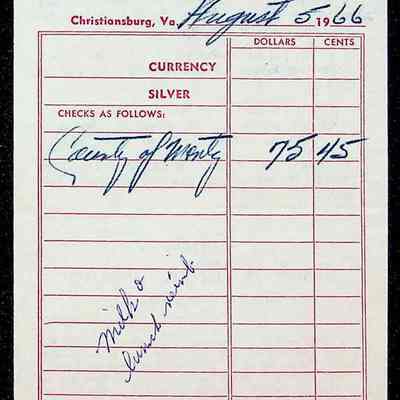 Christiansburg, Va. August 5 1966
DOLLARS CENTS
CURRENCY
SILVER
CHECKS AS FOLLOWS:
County of Montg 75 45
Milk &
lunch reimb.